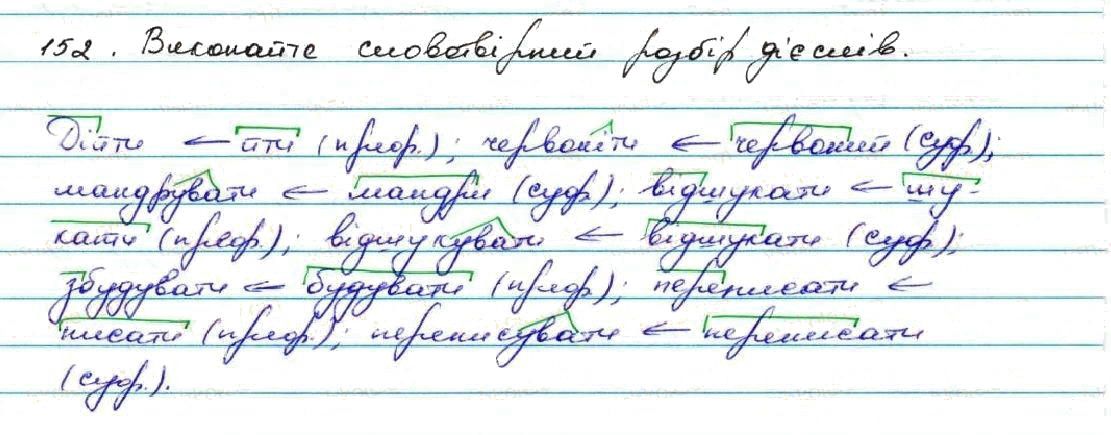 152. Виконайте словотвірний розбір дієслів.
Дійти ← йти (преф.); червоніти ← червоний (суф);
мандрувати ← мандри (суф); відшукати ← шу-
кати (преф.); відшукувати ← відшукати (суф);
збудувати ← будувати (преф); переписати ←
писати (преф.); переписувати ← переписати
(суф.).